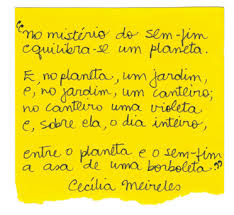 "no mistério do sem-fim
equilibra-se um planeta.
E, no planeta, um jardim,
e, no jardim, um canteiro;
no canteiro uma violeta
e, sobre ela, o dia inteiro,
entre o planeta e o sem-fim
a asa de uma borboleta"
Cecília Meireles